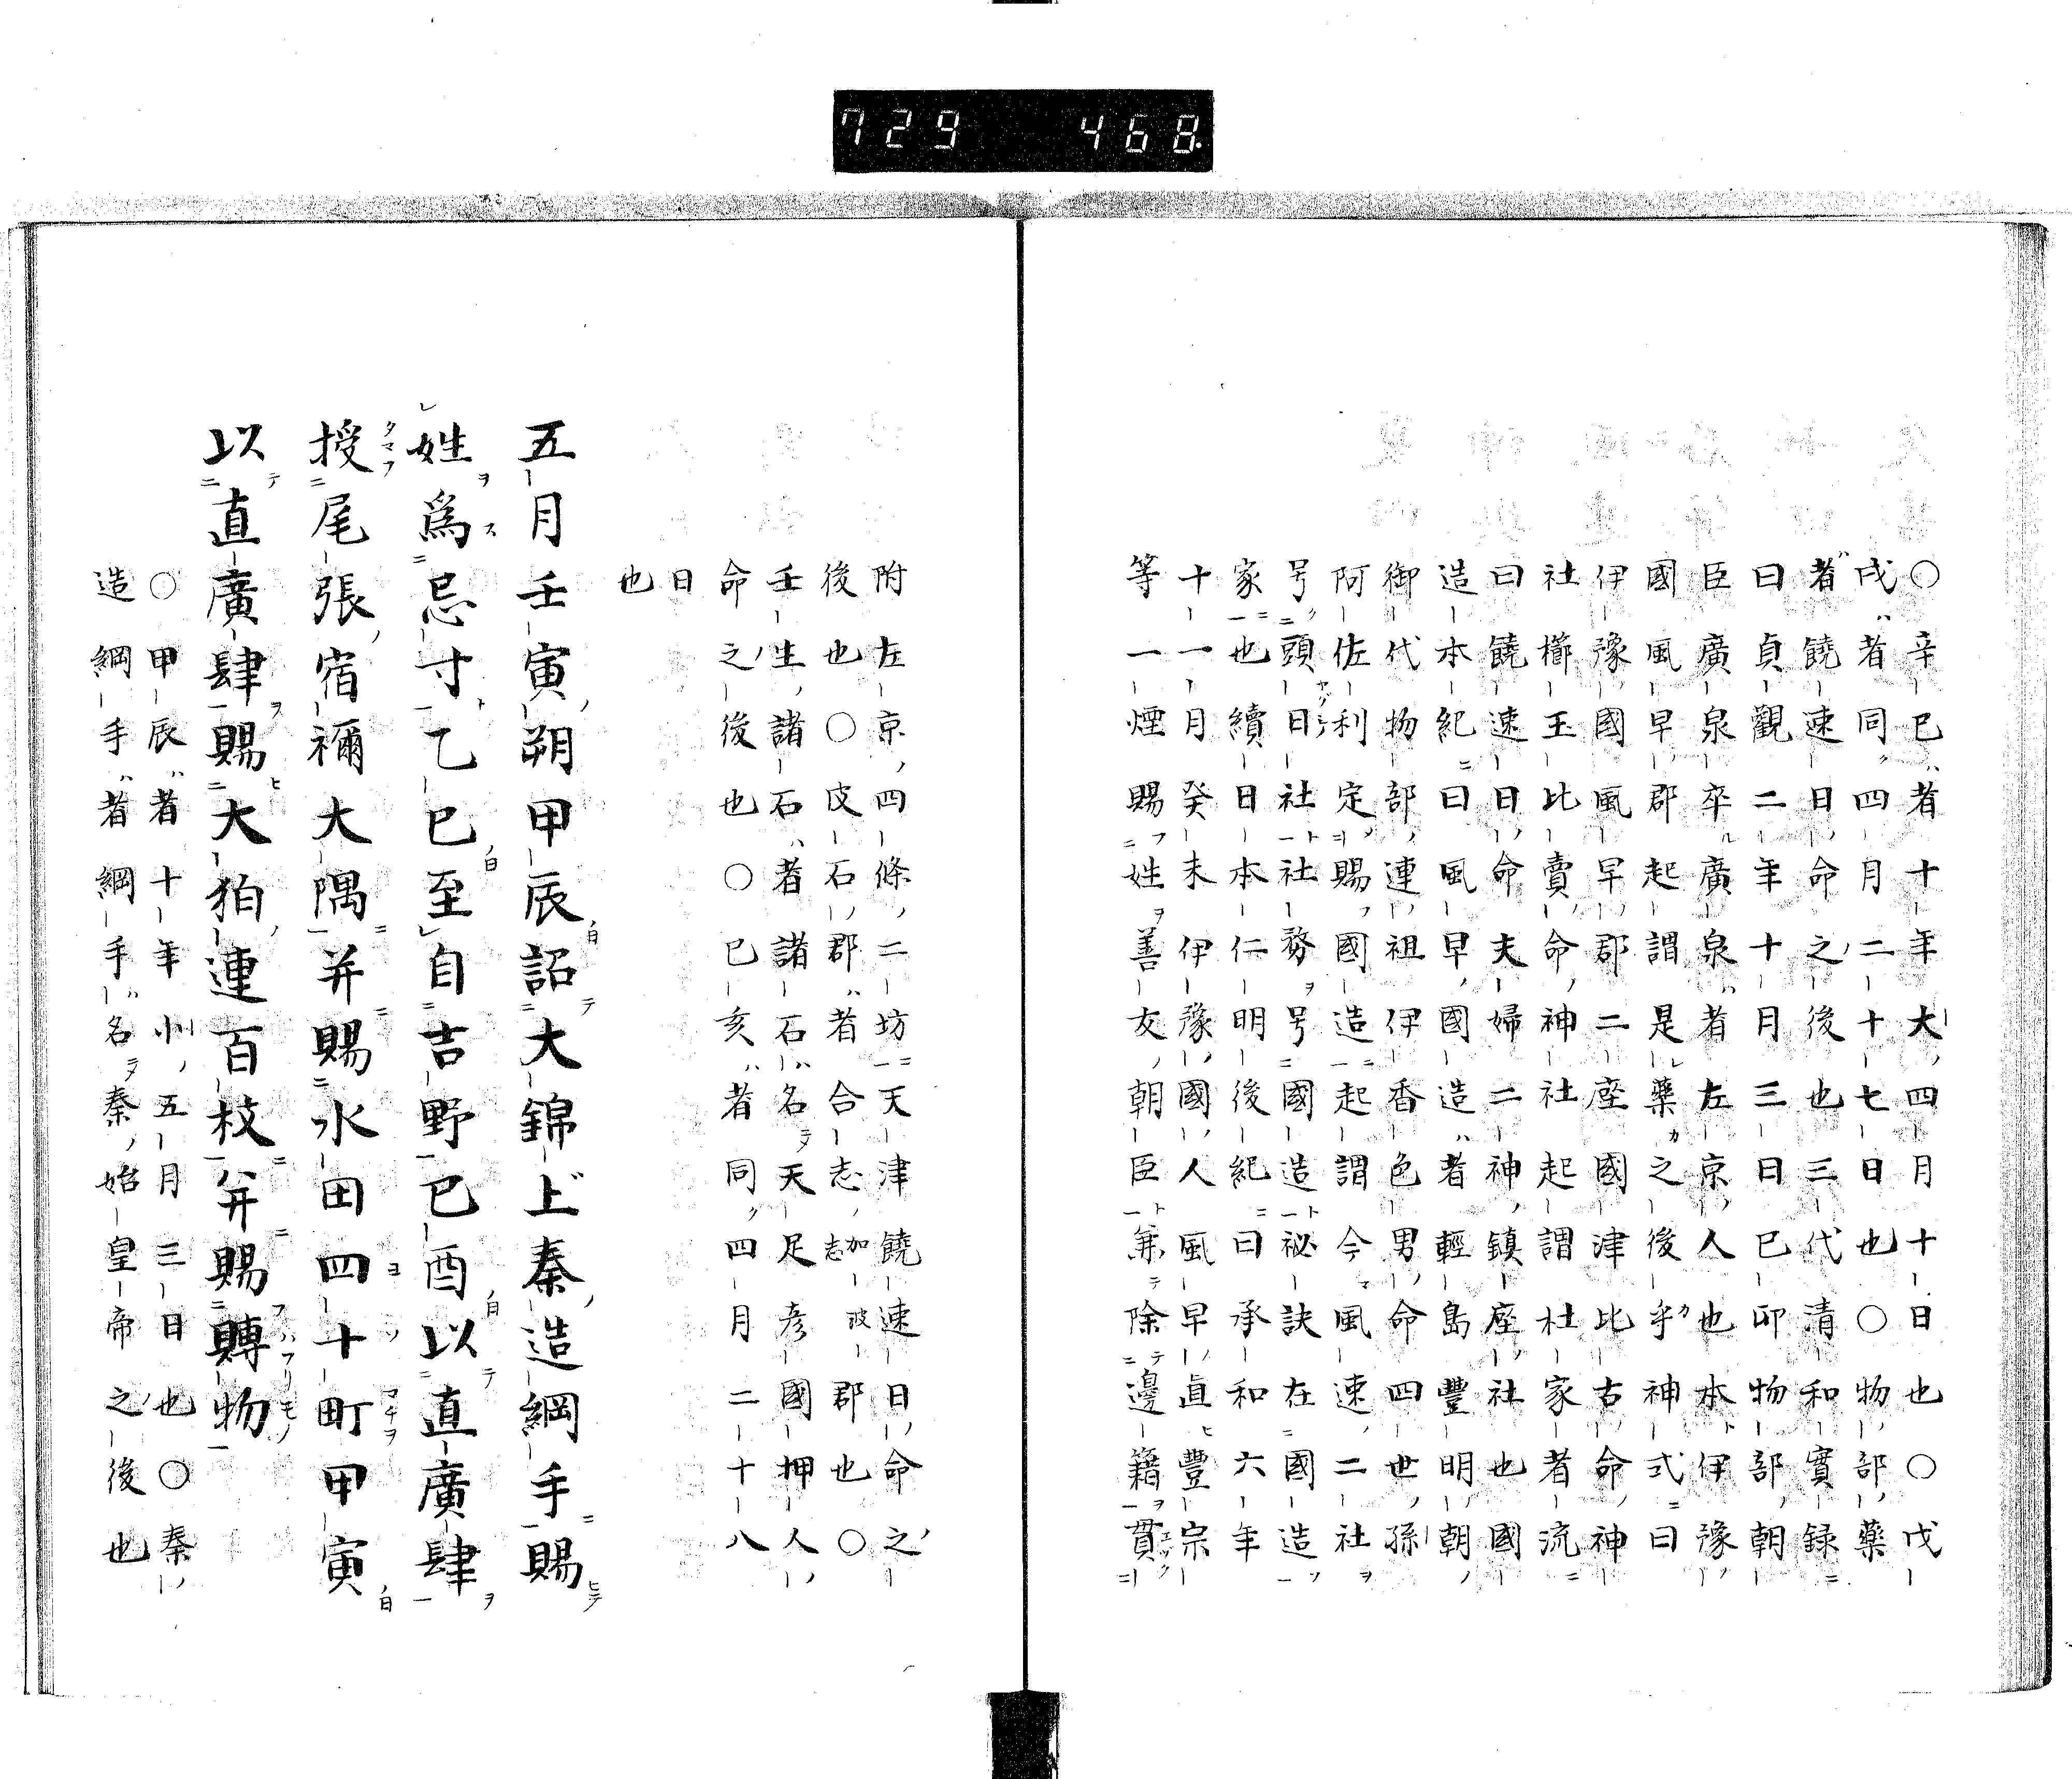 729 468.
〇辛巳者十年大四月十日也〇戊
戌者同四月二十七日也〇物部藥
者饒速日命之後也三代清和實録
曰貞觀二年十月三日己卯物部朝
臣廣泉卒廣泉者左京人也本伊豫
國風早郡起謂是藥之後乎神式曰
伊豫國風早郡二座國津比古命神
社櫛玉比賣命神社起謂社家者流
曰饒速日命夫婦二神鎮座社也國
造本紀曰風早國造者輕島豐明朝
御代物部連祖伊香色男命四世孫
阿佐利定賜國造起謂今風速二社
号頭日社社務号國造祕訣在國造
家也續日本仁明後紀曰承和六年
十一月癸未伊豫國人風早直豐宗
等一煙賜姓善友朝臣兼除邊籍貫
附左京四條二坊天津饒速日命之
後也〇皮石郡者合志加志波郡也〇
壬生諸石者諸石名天足彦國押人
命之後也〇己亥者同四月二十八
日
也
五月壬寅朔甲辰詔大錦上秦造綱手賜
姓爲忌寸乙巳至自吉野己酉以直廣肆
授尾張宿禰大隅并賜水田四十町甲寅
以直廣肆賜大狛連百枝并賜賻物
〇甲辰者十年小五月三日也〇秦
造綱手者綱手名秦始皇帝之後也